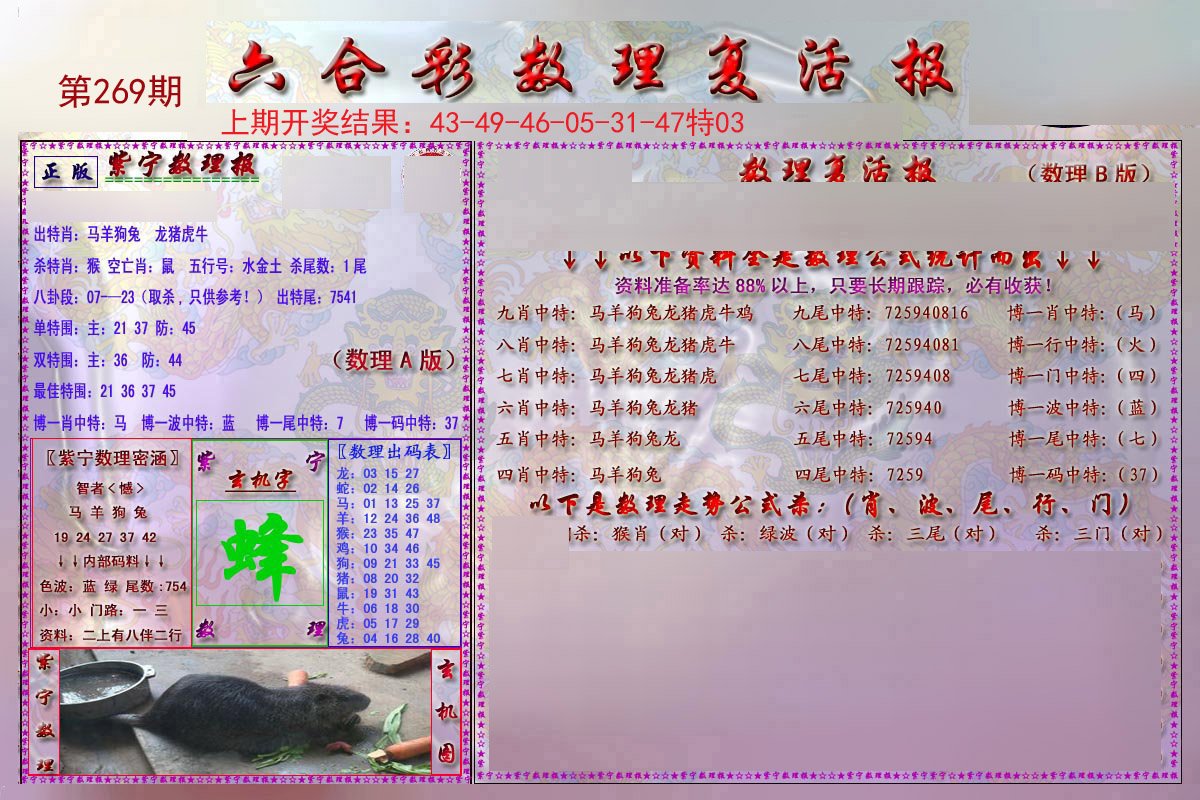 六合彩数理复活报
第269期
上期开奖结果：43-49-46-05-31-47特03
正版 紫宁数理报
出特肖：马羊狗兔 龙猪虎牛
杀特肖：猴 空亡肖：鼠 五行号：水金土 杀尾数：1尾
八卦段：07--23（取杀，只供参考！） 出特尾：7541
单特围：主：21 37 防：45
双特围：主：36 防：44
（数理A版）
最佳特围：21 36 37 45
博一肖中特：马 博一波中特：蓝 博一尾中特：7 博一码中特：37
〖紫宁数理密涵〗
智者＜憾＞
马 羊 狗 兔
19 24 27 37 42
↓↓内部码料↓↓
色波：蓝 绿 尾数:754
小：小 门路：一 三
资料：二上有八伴二行
紫 宁
玄机字
蜂
数 理
〖数理出码表〗
龙：03 15 27
蛇：02 14 26
马：01 13 25 37
羊：12 24 36 48
猴：23 35 47
鸡：10 34 46
狗：09 21 33 45
猪：08 20 32
鼠：19 31 43
牛：06 18 30
虎：05 17 29
兔：04 16 28 40
紫宁数理
玄机图
数理复活报
（数理B版）
↓↓以下资料全是数理公式统计而出↓↓
资料准备率达88%以上，只要长期跟踪，必有收获！
九肖中特：马羊狗兔龙猪虎牛鸡 九尾中特：725940816 博一肖中特：（马）
八肖中特：马羊狗兔龙猪虎牛 八尾中特：72594081 博一行中特：（火）
七肖中特：马羊狗兔龙猪虎 七尾中特：7259408 博一门中特：（四）
六肖中特：马羊狗兔龙猪 六尾中特：725940 博一波中特：（蓝）
五肖中特：马羊狗兔龙 五尾中特：72594 博一尾中特：（七）
四肖中特：马羊狗兔 四尾中特：7259 博一码中特：（37）
以下是数理走势公式杀：（肖、波、尾、行、门）
杀：猴肖（对） 杀：绿波（对） 杀：三尾（对） 杀：三门（对）